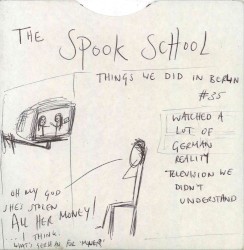 THE
SPOOK SCHOOL
THINGS WE DID IN BERLIN
#35
WATCHED A
LOT OF
GERMAN
REALITY
TELEVISION WE
DIDN'T
UNDERSTAND
OH MY GOD
SHE'S STOLEN
ALL HER MONEY!
I THINK.
WHAT'S GERMAN FOR 'MONEY'?